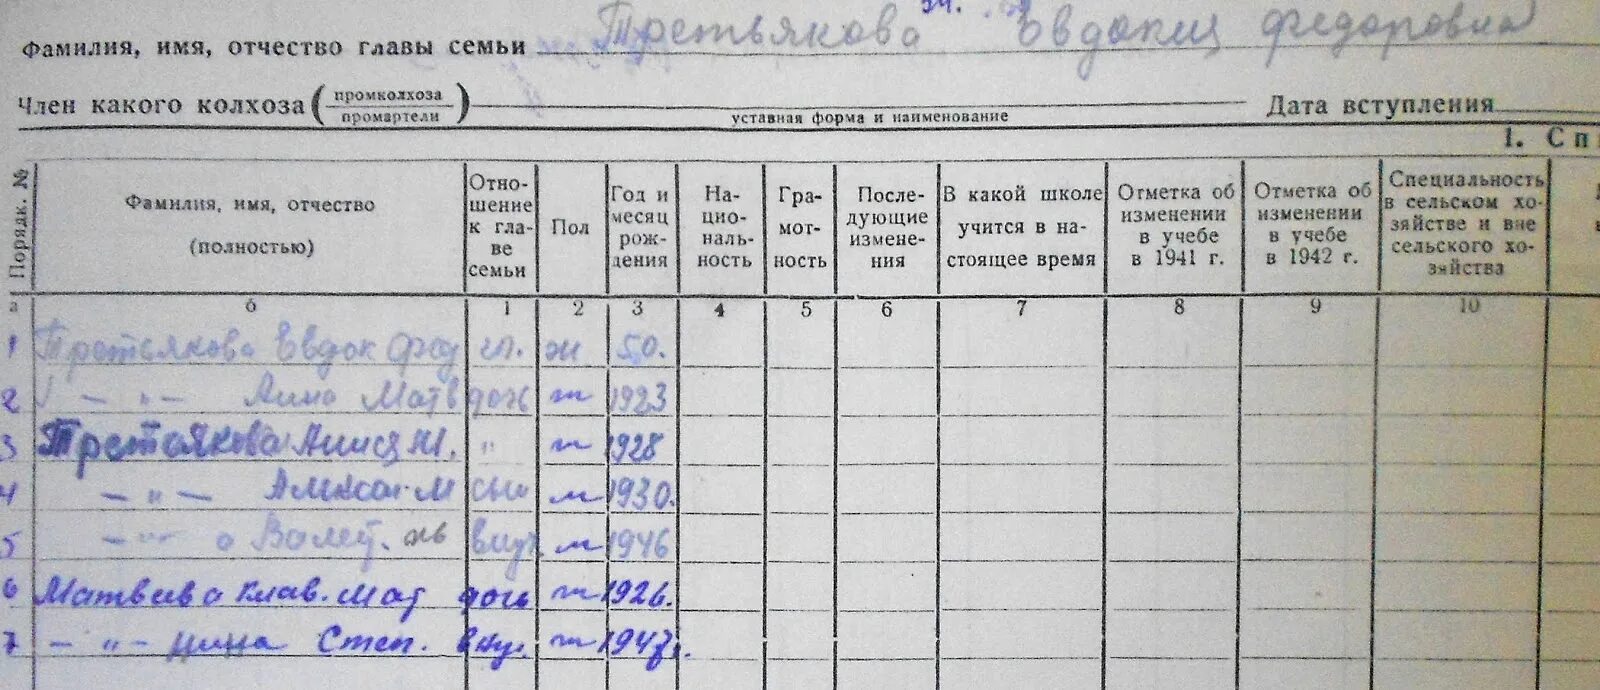 Фамилия, имя, отчество главы семьи Третьякова Евдокия Федоровна
Член какого колхоза (промколхоза промартели) Дата вступления
уставная форма и наименование
I. Сп
Порядк. № Фамилия, имя, отчество (полностью) Отно-шение к гла-ве семьи Пол Год и месяц рож-дения На-цио-наль-ность Гра-мот-ность После-дующие измене-ния В какой школе учится в на-стоящее время Отметка об изменении в учебе в 1941 г. Отметка об изменении в учебе в 1942 г. Специальность в сельском хо-зяйстве и вне сельского хо-зяйства
а б 1 2 3 4 5 6 7 8 9 10
1 Третьякова Евдок Фед гл. ж 50.
2 — " — Анна Матв дочь ж 1923
3 Третьякова М. " ж 1928
4 — " — Алексан. М сын м 1930.
5 — " — внук м 1946
6 Матвеева Клав. Мат дочь ж 1926.
7 — " — Нина Степ. вну. ж 1947г.